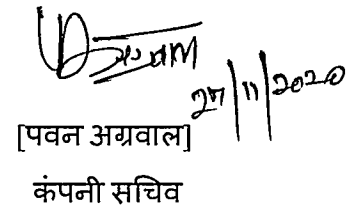 27/11/2020
[पवन अग्रवाल]
कंपनी सचिव